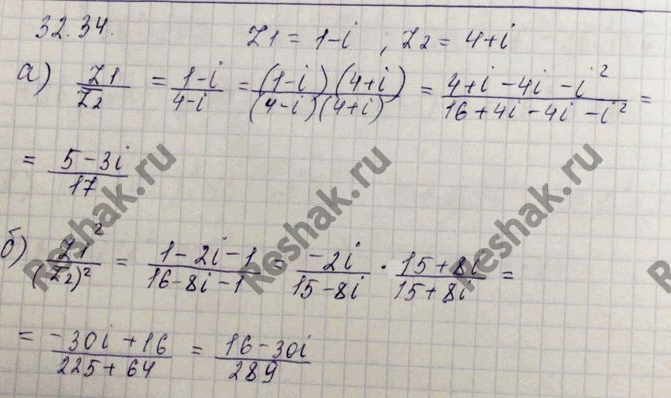 32.34. z1 = 1-i , z2 = 4+i
а) z1/z̅2 = (1-i)/(4-i) = (1-i)(4+i)/(4-i)(4+i) = (4+i-4i-i²)/(16+4i-4i-i²) =
= (5-3i)/17
б) z1²/(z̅2)² = (1-2i-1)/(16-8i-1) = -2i/(15-8i) · (15+8i)/(15+8i) =
= (-30i+16)/(225+64) = (16-30i)/289
Reshak.ru
Reshak.ru
Reshak.ru